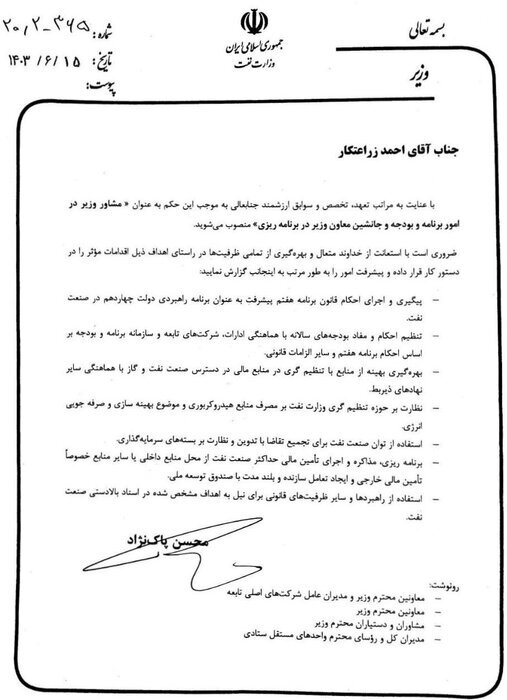 بسمه تعالی
جمهوری اسلامی ایران
وزارت نفت
وزیر
شماره: ۲۰/۲-۳۶۵
تاریخ: ۱۴۰۳/۶/۱۵
پیوست:
جناب آقای احمد زراعتکار
با عنایت به مراتب تعهد، تخصص و سوابق ارزشمند جنابعالی به موجب این حکم به عنوان « مشاور وزیر در
امور برنامه و بودجه و جانشین معاون وزیر در برنامه ریزی» منصوب می‌شوید.
ضروری است با استعانت از خداوند متعال و بهره‌گیری از تمامی ظرفیت‌ها در راستای اهداف ذیل اقدامات مؤثر را در
دستور کار قرار داده و پیشرفت امور را به طور مرتب به اینجانب گزارش نمایید:
– پیگیری و اجرای احکام قانون برنامه هفتم پیشرفت به عنوان برنامه راهبردی دولت چهاردهم در صنعت
نفت.
– تنظیم احکام و مفاد بودجه‌های سالانه با هماهنگی ادارات، شرکت‌های تابعه و سازمانه برنامه و بودجه بر
اساس احکام برنامه هفتم و سایر الزامات قانونی.
– بهره‌گیری بهینه از منابع با تنظیم گری در منابع مالی در دسترس صنعت نفت و گاز با هماهنگی سایر
نهادهای ذیربط.
– نظارت بر حوزه تنظیم گری وزارت نفت بر مصرف منابع هیدروکربوری و موضوع بهینه سازی و صرفه جویی
انرژی.
– استفاده از توان صنعت نفت برای تجمیع تقاضا با تدوین و نظارت بر بسته‌های سرمایه‌گذاری.
– برنامه ریزی، مذاکره و اجرای تأمین مالی حداکثر صنعت نفت از محل منابع داخلی یا سایر منابع خصوصاً
تأمین مالی خارجی و ایجاد تعامل سازنده و بلند مدت با صندوق توسعه ملی.
– استفاده از راهبردها و سایر ظرفیت‌های قانونی برای نیل به اهداف مشخص شده در اسناد بالادستی صنعت
نفت.
محسن پاک‌نژاد
رونوشت:
– معاونین محترم وزیر و مدیران عامل شرکت‌های اصلی تابعه
– معاونین محترم وزیر
– مشاوران و دستیاران محترم وزیر
– مدیران کل و رؤسای محترم واحدهای مستقل ستادی